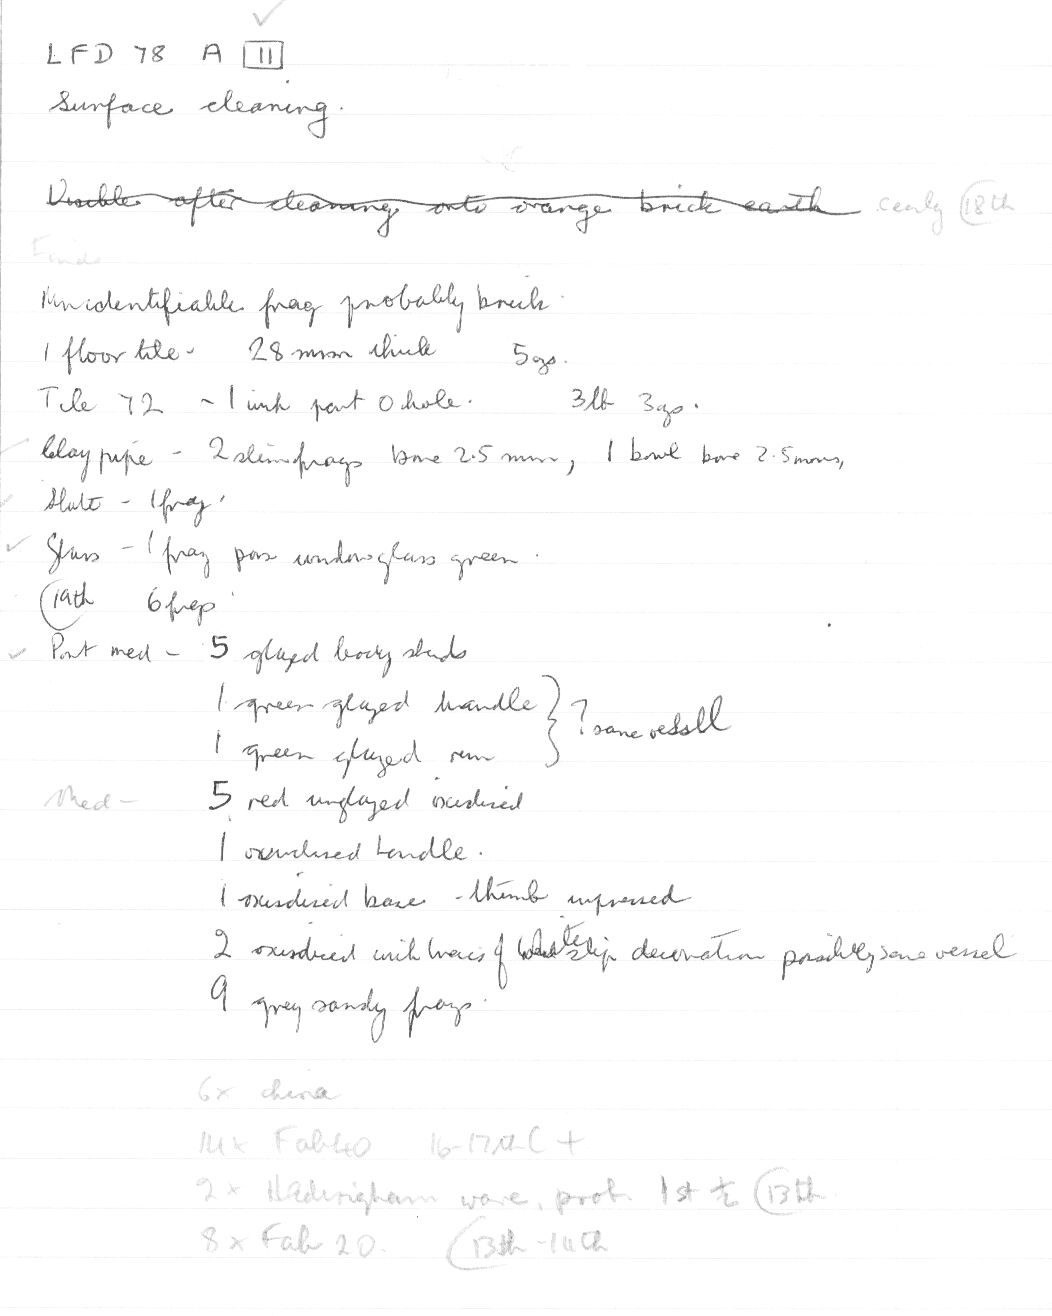 LFD 78 A 11
Surface cleaning.
Visible after cleaning onto orange brick earth early 18th
Finds
1 unidentifiable frag probably brick
1 floor tile - 28 mm thick 5 ozs.
Tile 72 - 1 with part O hole. 3 lb 3 ozs.
Clay pipe - 2 stem frags bore 2.5 mm, 1 bowl bore 2.5 mms,
Slate - 1 frag
Glass - 1 frag poss window glass green.
19th 6 frags
Post med - 5 glazed body sherds
1 green glazed handle
1 green glazed rim
? same vessell
Med - 5 red unglazed oxidised
1 oxidised handle.
1 oxidised base - thumb impressed
2 oxidised with traces of white slip decoration possibly same vessel
9 grey sandy frags.
6x china
14x Fab 40 16-17th C +
2x Hedingham ware, prob. 1st ½ C13th
8x Fab 20. C13th-14th